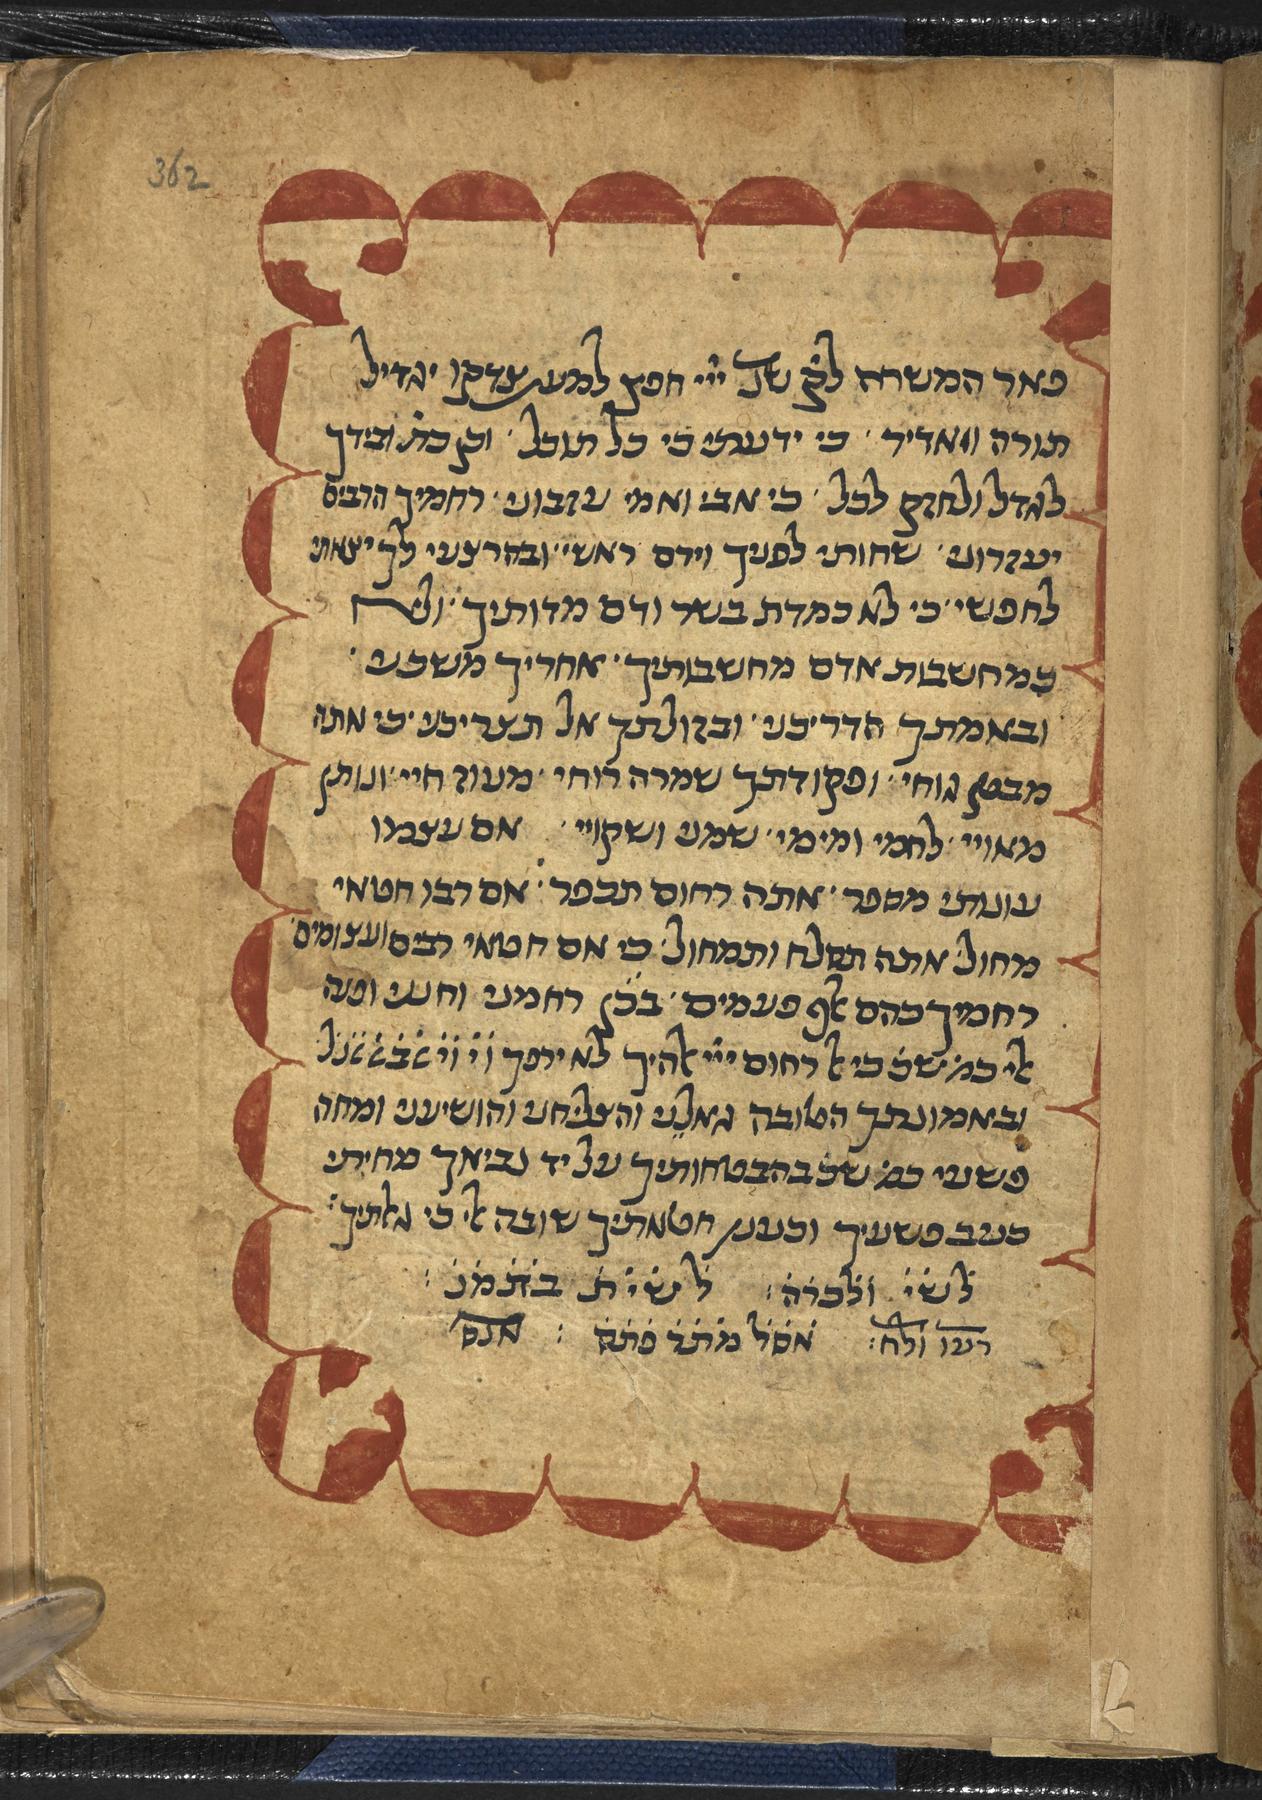 362
פאר המשרה לק̇ שנ̇ ייי חפץ למען צדקו יגדיל
תורה ויאדיר ֗ כי ידעתי כי כל תוכל ֗ וכן כת̇ ובידך
לגדל ולחזק לכל ֗ כי אבי ואמי עזבוני ֗ רחמיך הרבים
יעזרוני ֗ שחותי לפניך וירם ראשי ֗ ובהרצעי לך יצאתי
לחפשי ֗ כי לא כמדת בשר ודם מדותיך ֗ ולא
כמחשבות אדם מחשבותיך ֗ אחריך משכני ֗
ובאמתך הדריכני ֗ ובזולתך אל תצריכני ֗ כי אתה
מבטן גוחי ֗ ופקודתך שמרה רוחי ֗ מעוז חיי ֗ ונותן
מאויי ֗ לחמי ומימי ֗ שמני ושקויי ֗ אם עצמו
עונותי מספר ֗ אתה רחום תכפר ֗ אם רבו חטאי
מחול אתה תסלח ותמחול ֗ כי אם חטאי רבים ועצומים ֗
רחמיך כהם אלף פעמים ֗ בכן רחמני וחנני ופנה
אלי כמ̇ שכ̇ כי אל רחום ייי אלהיך לא ירפך
ובאמונתך הטובה גאלני והצליחני והושיעני ומחה
פשעי כמ̇ שכ̇ בהבטחותיך על יד נביאך מחיתי
כעב פשעיך וכענן חטאתיך שובה אלי כי גאלתיך :